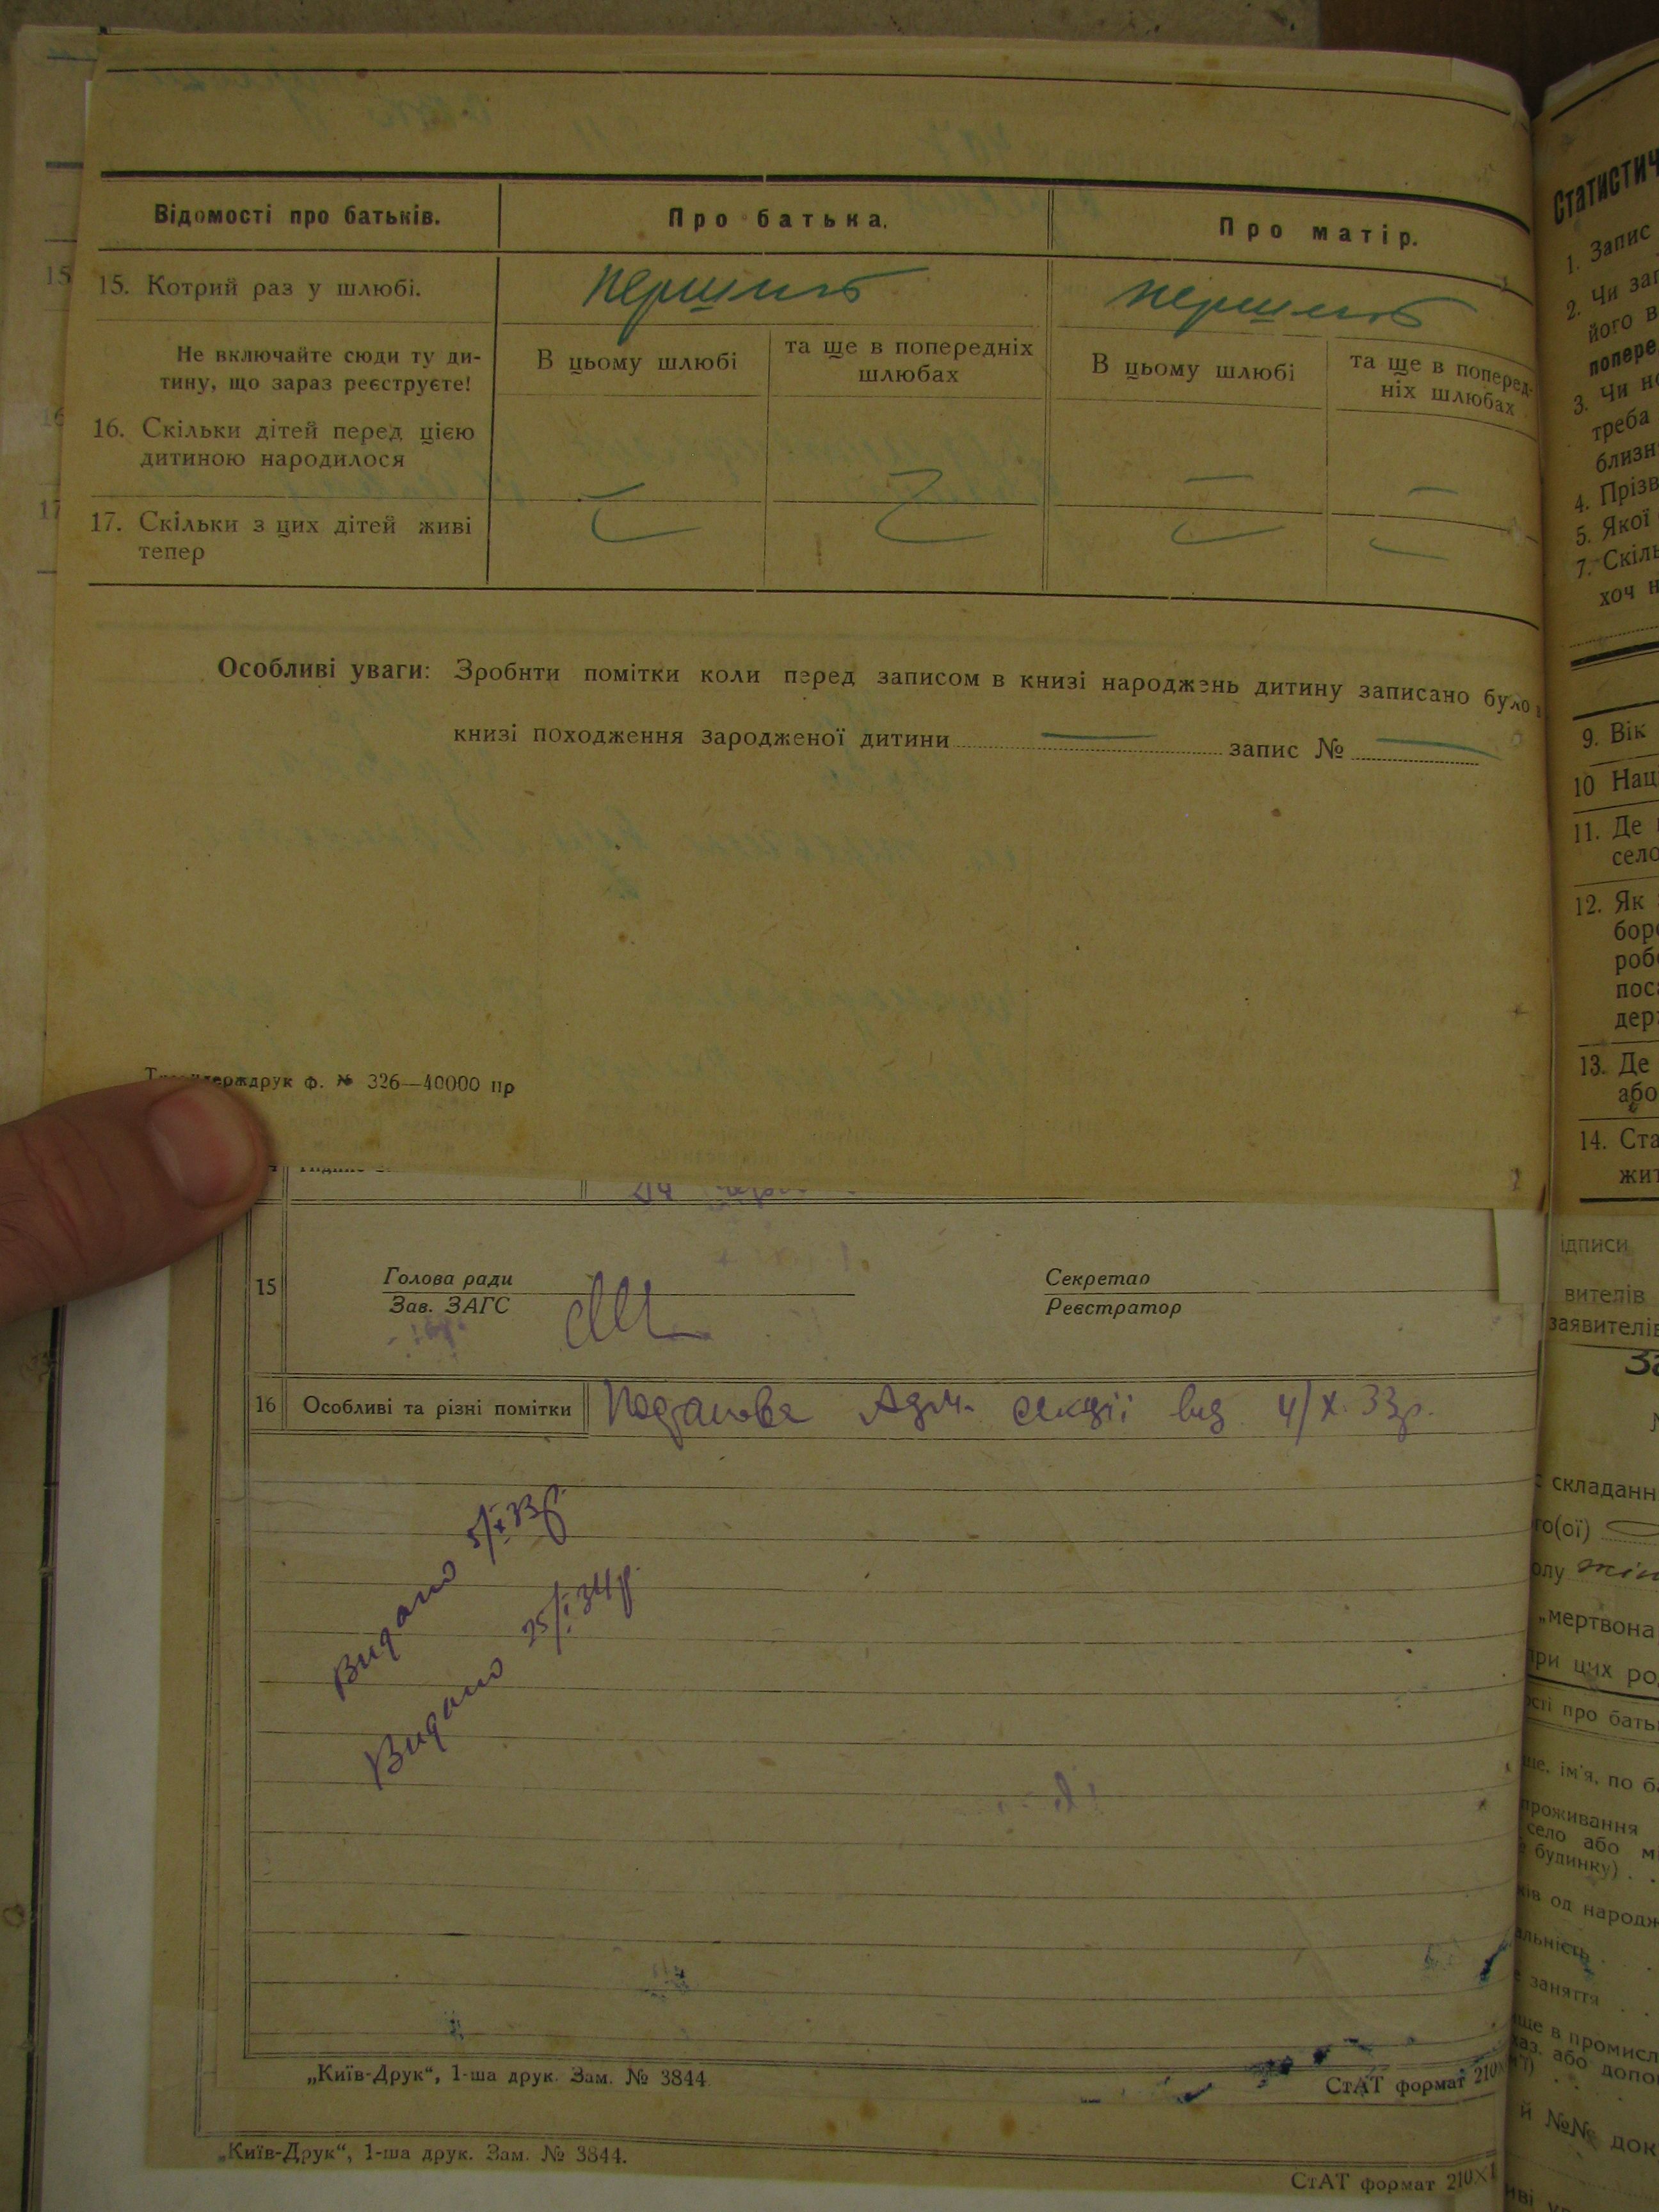 Відомості про батьків.
Про батька.
Про матір.
15. Котрий раз у шлюбі.
Не включайте сюди ту ди-
тину, що зараз реєструєте!
В цьому шлюбі
та ще в попередніх
шлюбах
В цьому шлюбі
та ще в поперед-
ніх шлюбах
16. Скільки дітей перед цією
дитиною народилося
17. Скільки з цих дітей живі
тепер
Особливі уваги: Зробнти помітки коли перед записом в книзі народжень дитину записано було
книзі походження зародженої дитини — запис № —
ф. № 326—40000 пр
15
Голова ради
Зав. ЗАГС
Секретар
Реєстратор
16 Особливі та різні помітки
Адм. секції від 4/X. 33р.
Видано 5/X 33р.
Видано 25/I 34р.
„Київ-Друк“, 1-ша друк. Зам. № 3844
СтАТ формат 210×
„Київ-Друк“, 1-ша друк. Зам. № 3844.
СтАТ формат 210×1
Статистич
1. Запис
2. Чи
його в
попере
3. Чи
треба
близн
4. Прізв
5. Якої
7. Скіль
хоч н
9. Вік
10 Нац
11. Де
село
12. Як
боро
робо
поса
держ
13. Де
або
14. Ста
жит
ідписи
вителів
заявителів
складанн
го(ої)
олу
„мертвона
при цих ро
ості про бать
ім'я, по б
проживання
село або м
будинку)
од народж
альність
заняття
ще в промисл
або допо
й №№ док